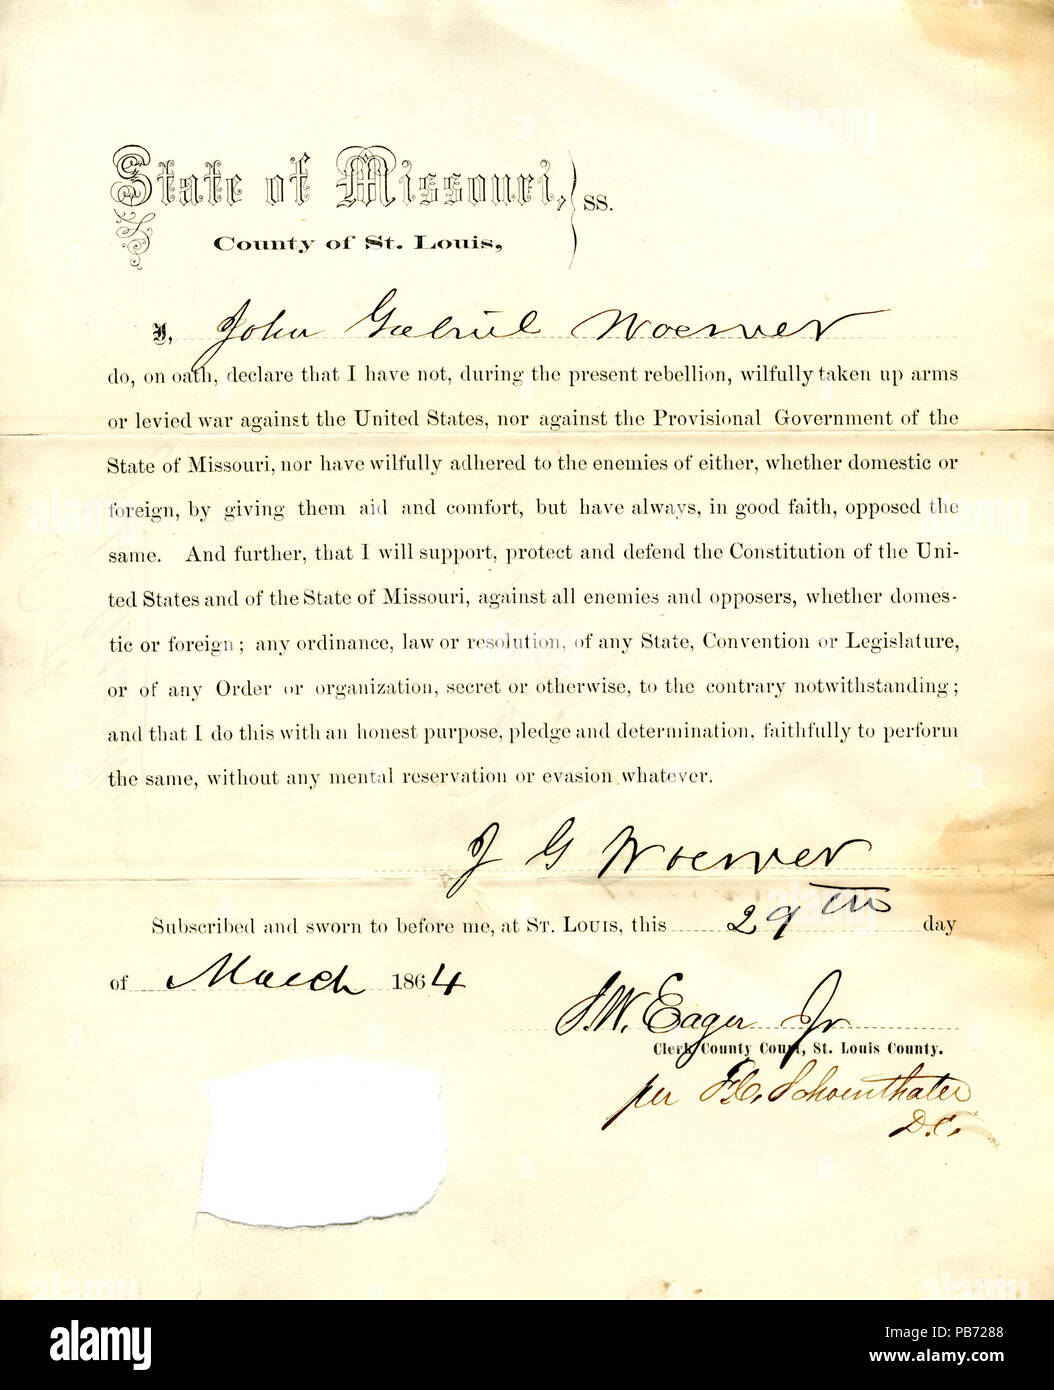 State of Missouri, } ss.
County of St. Louis,
I, John Gabriel Woerner
do, on oath, declare that I have not, during the present rebellion, wilfully taken up arms
or levied war against the United States, nor against the Provisional Government of the
State of Missouri, nor have wilfully adhered to the enemies of either, whether domestic or
foreign, by giving them aid and comfort, but have always, in good faith, opposed the
same. And further, that I will support, protect and defend the Constitution of the Uni-
ted States and of the State of Missouri, against all enemies and opposers, whether domes-
tic or foreign; any ordinance, law or resolution, of any State, Convention or Legislature,
or of any Order or organization, secret or otherwise, to the contrary notwithstanding;
and that I do this with an honest purpose, pledge and determination, faithfully to perform
the same, without any mental reservation or evasion whatever.
J G Woerner
Subscribed and sworn to before me, at ST. LOUIS, this 29th day
of March 1864
S.W. Eager Jr
Clerk County Court, St. Louis County.
per Schoenthaler
D.C.
alamy
PB7288
www.alamy.com